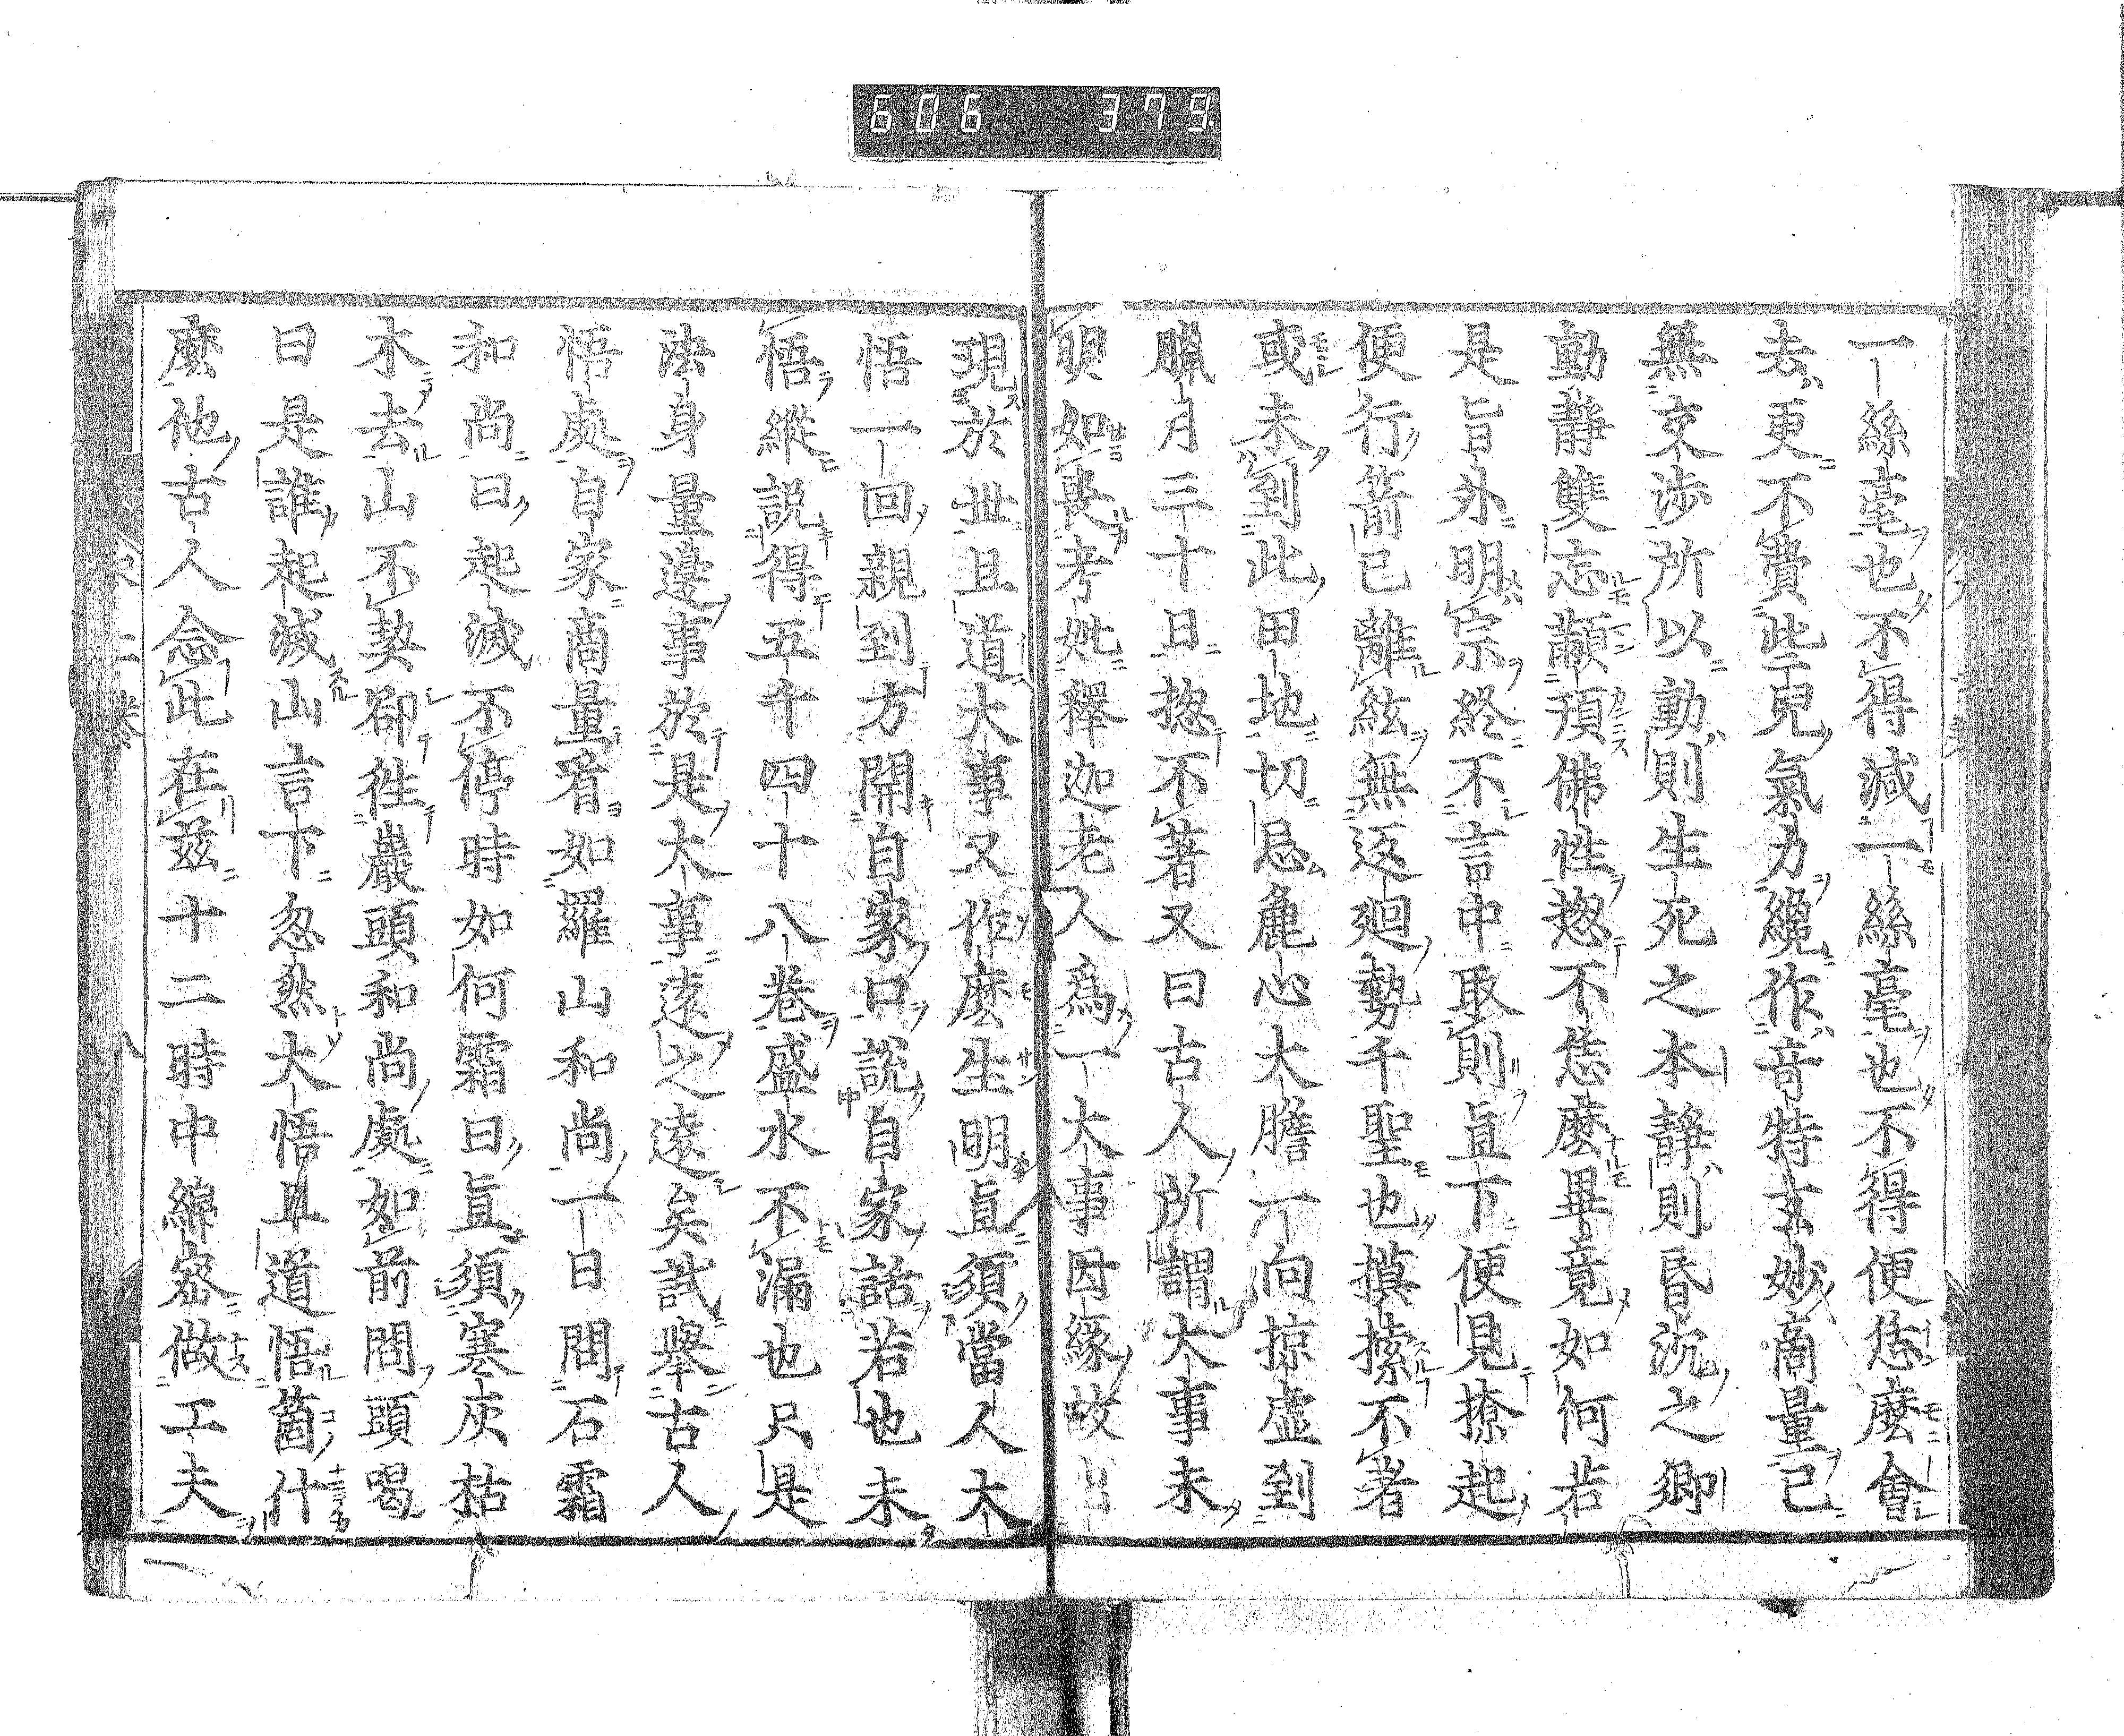 606 379.
一絲毫也不得減一絲毫也不得便恁麼會
去更不費此兒氣力纔作奇特玄妙商量已
無交渉所以動則生死之本靜則昏沉之鄉
動靜雙忘顢頇佛性揔不恁麼畢竟如何若
是旨外明宗終不言中取則直下便見撩起
便行箭已離絃無返廻勢千聖也摸𢱢不著
或未到此田地切忌麁心大膽一向掠虛到
臘月三十日揔不著又曰古人所謂大事未
明如喪考妣釋迦老人爲一大事因緣故出
現於世且道大事又作麼生明直須當人大
悟一回親到方開自家口說自家話若也未
悟縱說得五千四十八卷盛水不漏也只是
法身量邊事於是大事遠之遠矣試舉古人
悟處自家商量看如羅山和尚一日問石霜
和尚曰起滅不停時如何霜曰直須寒灰枯
木去山不契卻徃巖頭和尚處如前問頭喝
曰是誰起滅山言下忽然大悟且道悟箇什
麼他古人念此在茲十二時中綿密做工夫